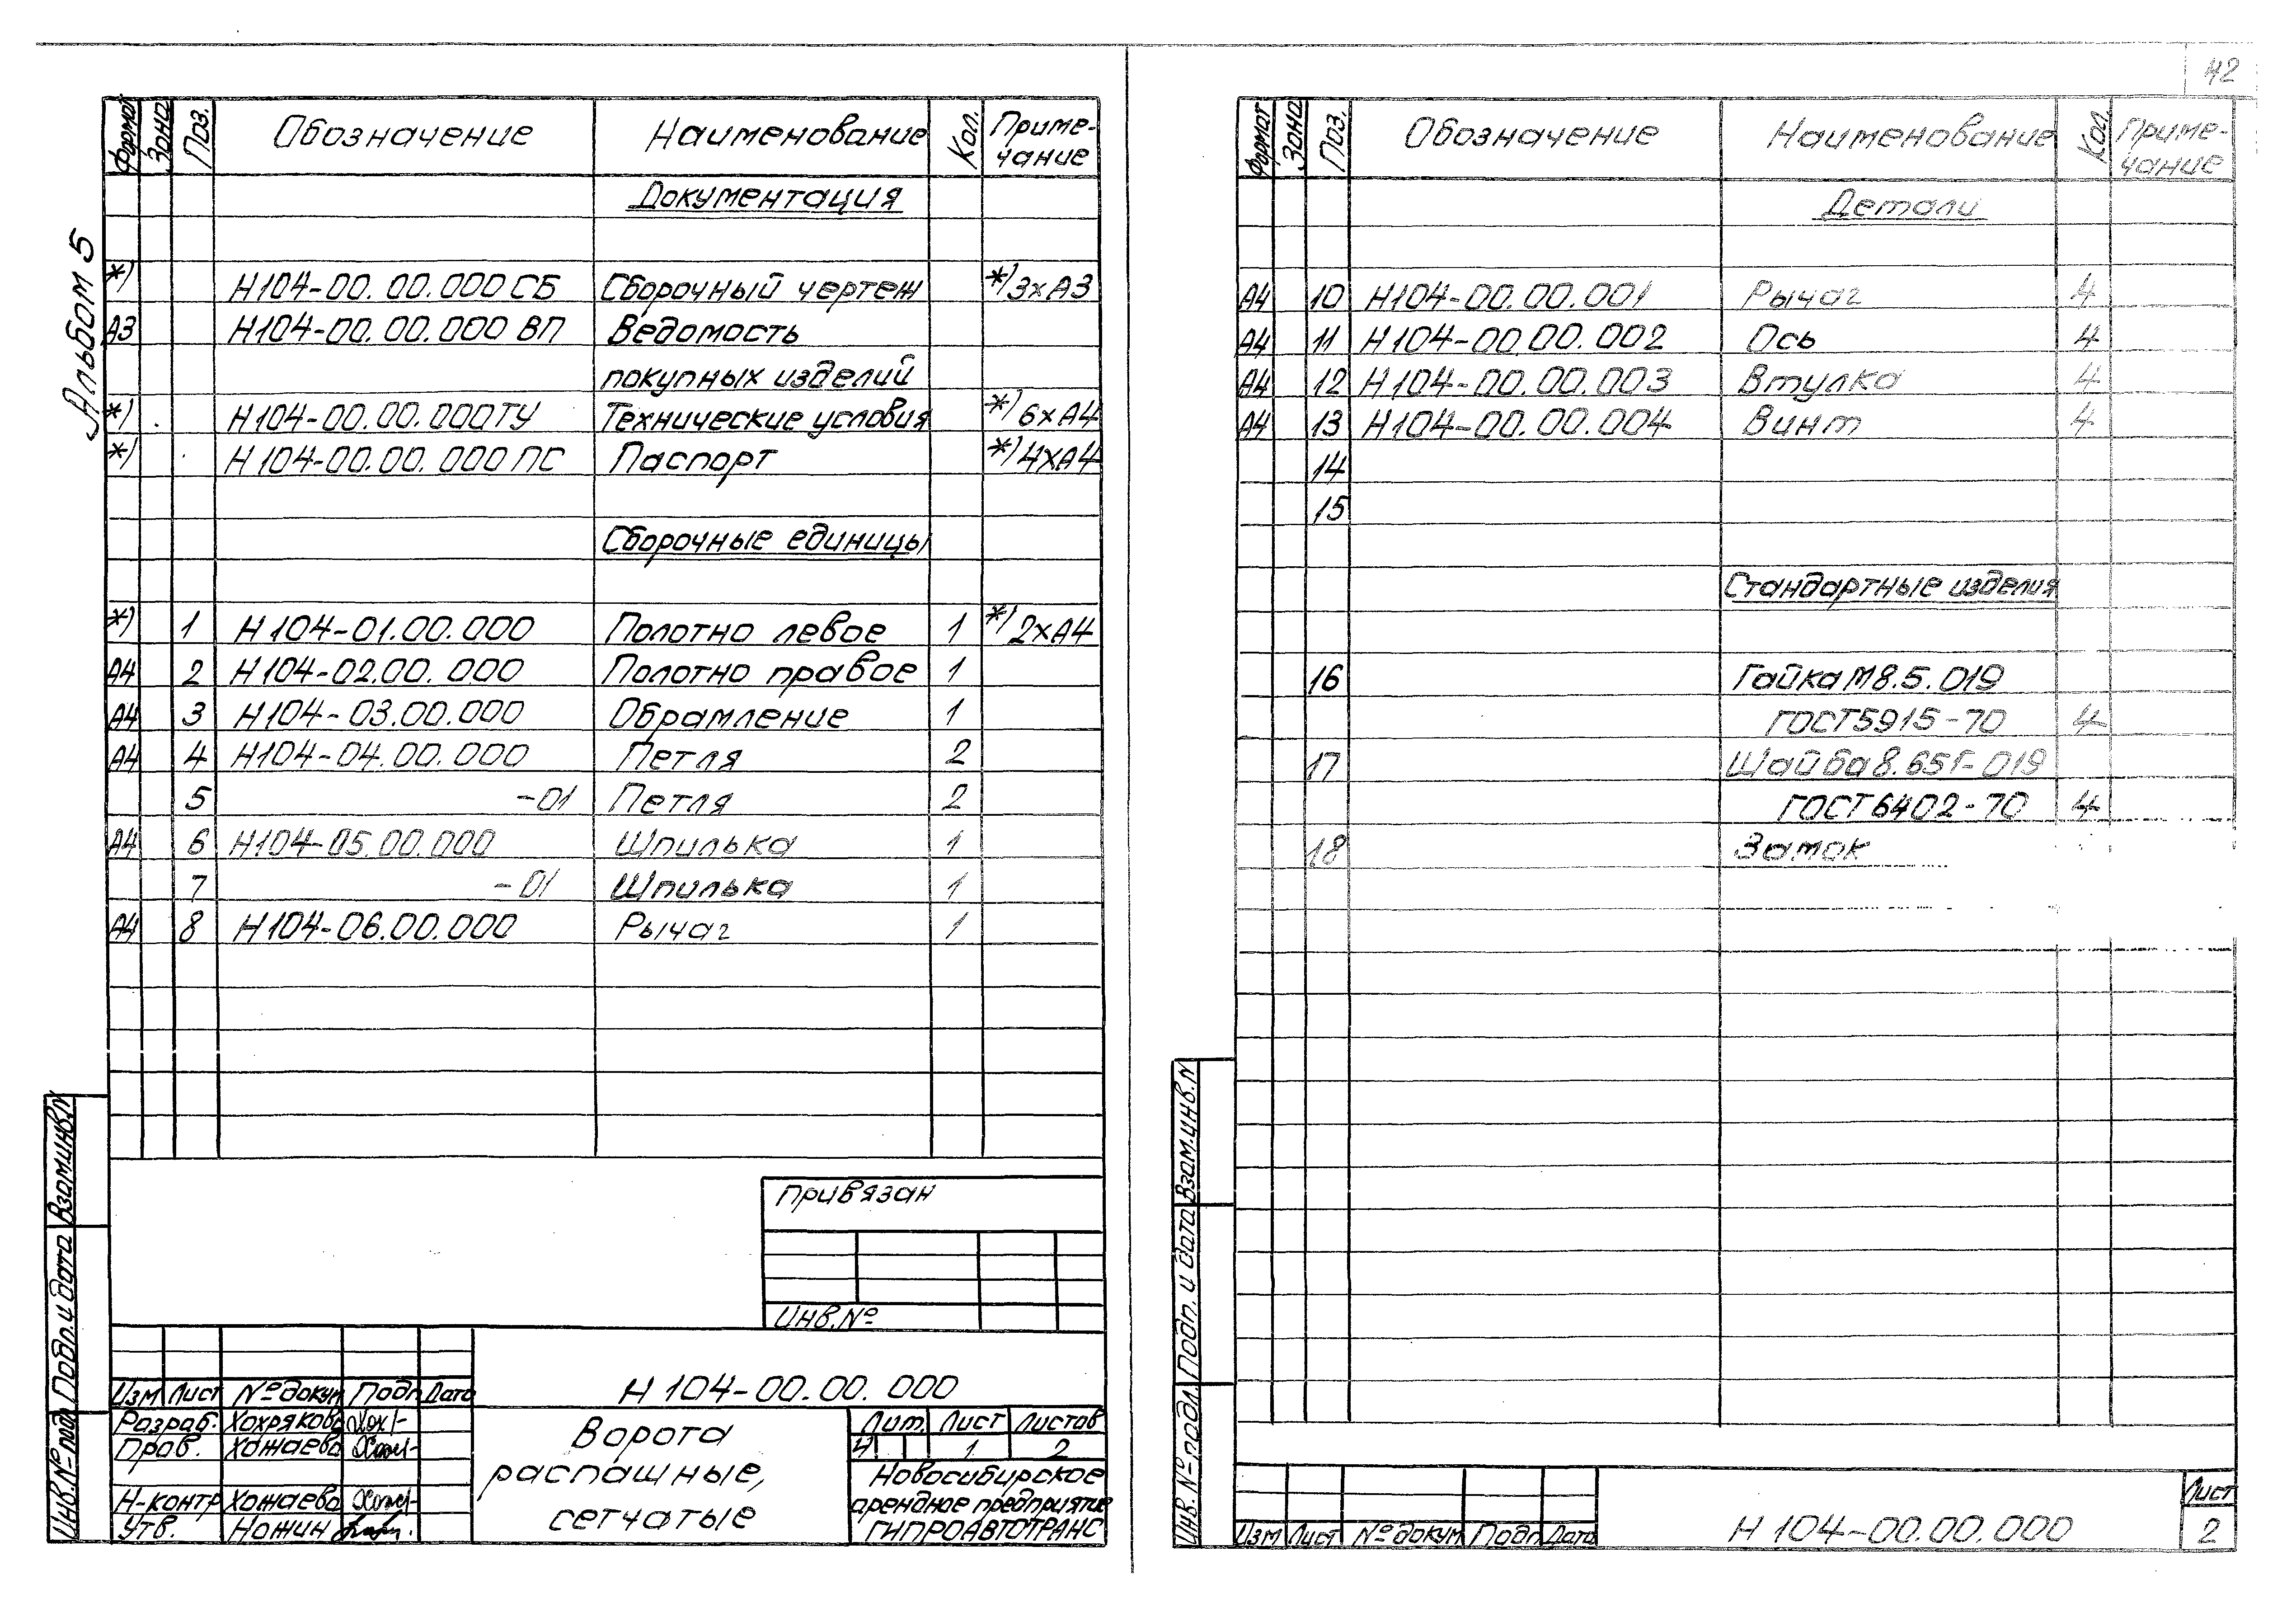 42
Альбом 5
Формат Зона Поз. Обозначение Наименование Кол. Приме-
чание
Документация
*) Н104-00.00.000 СБ Сборочный чертеж *) 3хА3
А3 Н104-00.00.000 ВП Ведомость
покупных изделий
*) Н104-00.00.000ТУ Технические условия *) 6хА4
*) Н104-00.00.000 ПС Паспорт *) 4хА4
Сборочные единицы
*) 1 Н104-01.00.000 Полотно левое 1 *) 2хА4
А4 2 Н104-02.00.000 Полотно правое 1
А4 3 Н104-03.00.000 Обрамление 1
А4 4 Н104-04.00.000 Петля 2
5 -01 Петля 2
А4 6 Н104-05.00.000 Шпилька 1
7 -01 Шпилька 1
А4 8 Н104-06.00.000 Рычаг 1
Привязан
Инв.№
Изм Лист № докум Подп Дата
Н 104-00.00.000
Разраб. Хохрякова
Пров. Хожаева
Н-контр Хожаева
Утв. Ножин
Ворота
распашные,
сетчатые
Лит. Лист Листов
И 1 2
Новосибирское
арендное предприятие
ГИПРОАВТОТРАНС
Инв.№ подл Подп. и дата Взам.инв.N
Формат Зона Поз. Обозначение Наименование Кол. Приме-
чание
Детали
А4 10 Н104-00.00.001 Рычаг 4
А4 11 Н104-00.00.002 Ось 4
А4 12 Н104-00.00.003 Втулка 4
А4 13 Н104-00.00.004 Винт 4
14
15
Стандартные изделия
16 Гайка М8.5.019
ГОСТ5915-70 4
17 Шайба 8.65Г-019
ГОСТ 6402-70 4
18 Замок
Инв.№ подл. Подп. и дата Взам.инв.N
Изм Лист № докум Подп Дата
Н 104-00.00.000
Лист
2